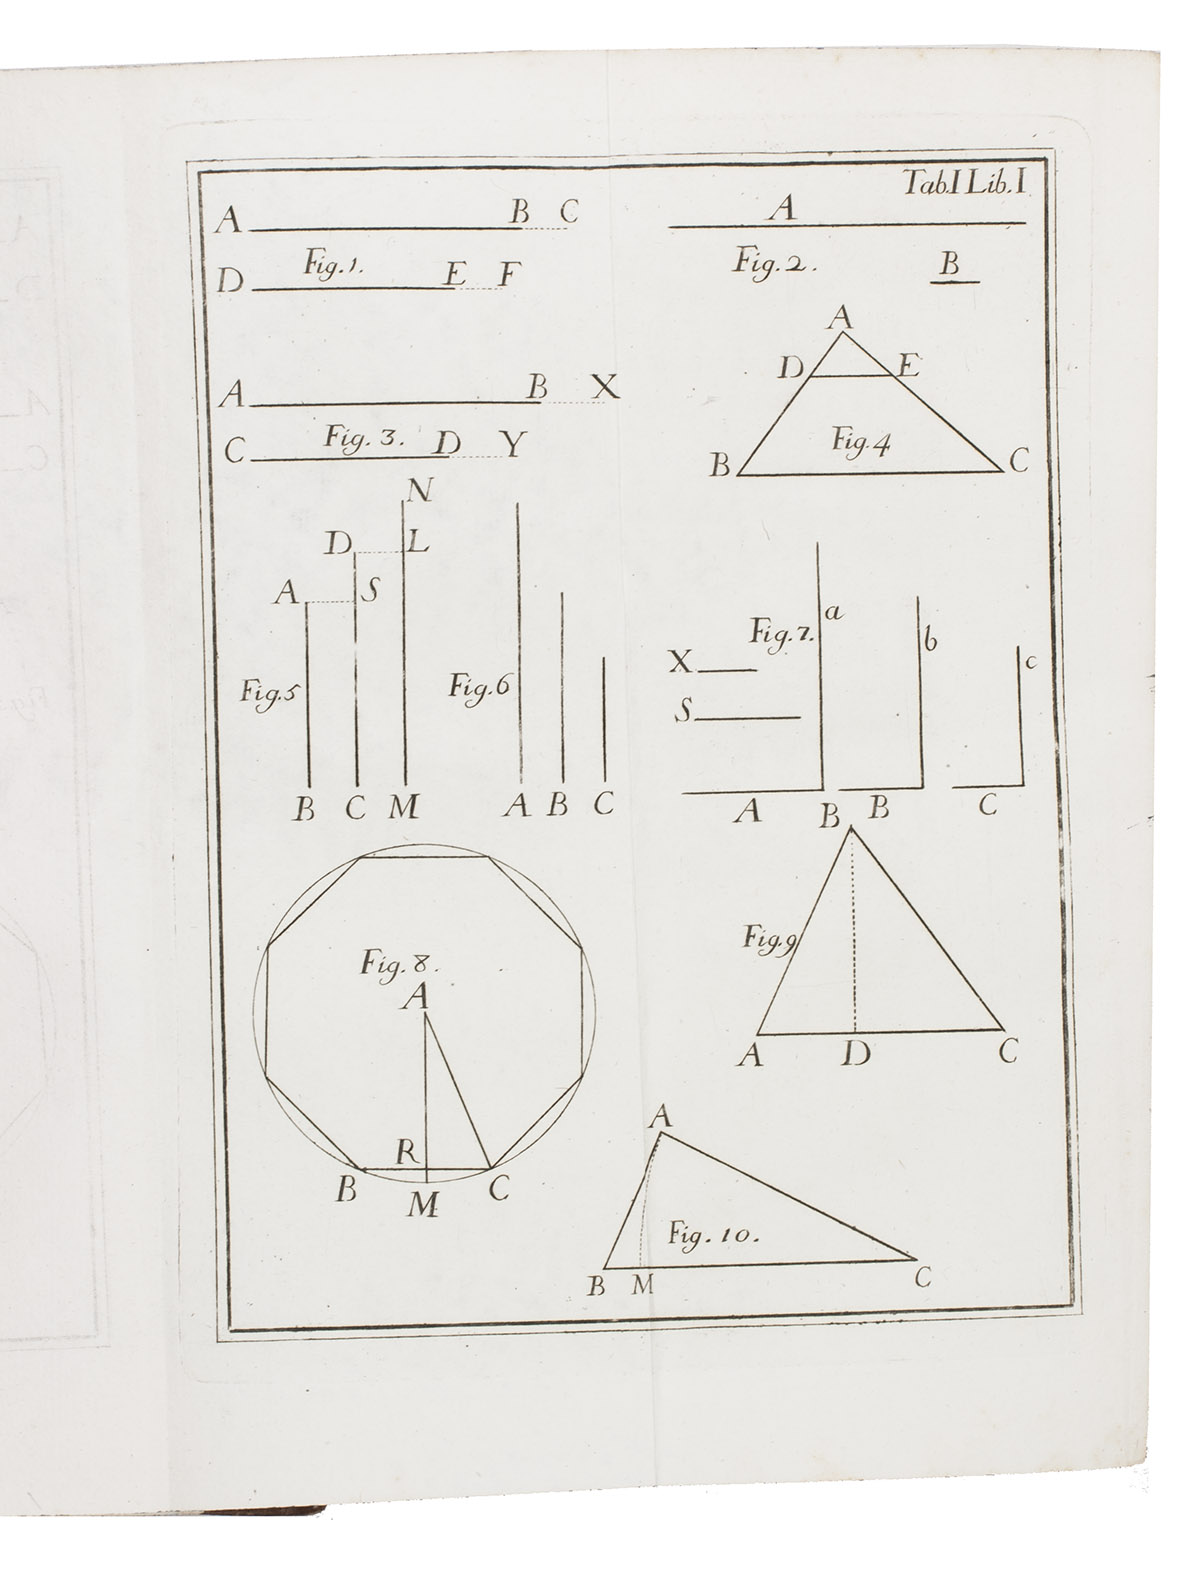 Tab.I Lib.I
A B C
Fig.1.
D E F
A
Fig.2.
B
A B X
Fig. 3.
C D Y
A
D E
Fig.4
B C
N
D L
A S
Fig.5
B C M
Fig.6
A B C
a
Fig.7.
b
X
c
S
A B C
Fig. 8.
A
R
B C
M
B
Fig.9
A D C
A
Fig. 10.
B M C